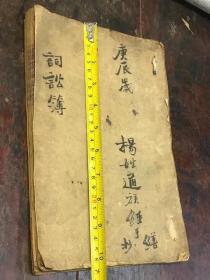 庚辰歲
楊姓通族鍾手抄
詞訟簿